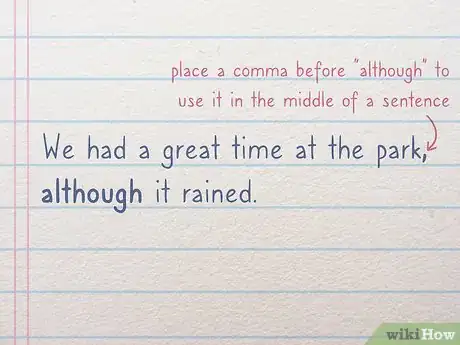 place a comma before "although" to
use it in the middle of a sentence
We had a great time at the park,
although it rained.
wikiHow